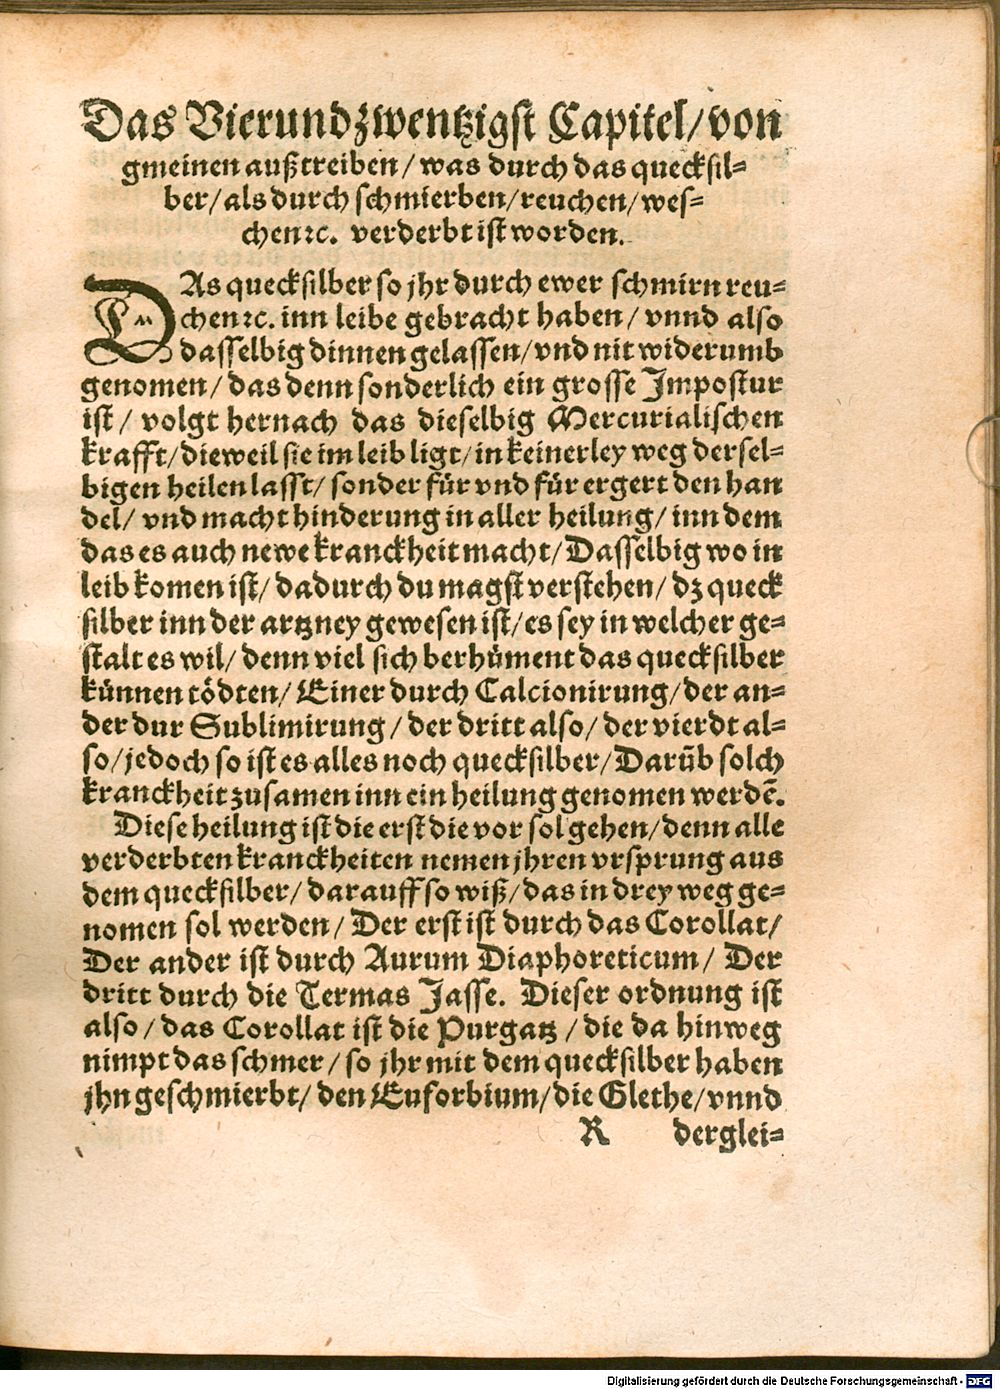 Das Vierundzwentzigst Capitel/von
gmeinen außtreiben/was durch das quecksil-
ber/als durch schmierben/reuchen/wes-
chen ꝛc. verderbt ist worden.
DAs quecksilber so jhr durch ewer schmirn reu-
chen ꝛc. inn leibe gebracht haben/ vnnd also
dasselbig dinnen gelassen/vnd nit widerumb
genomen/ das denn sonderlich ein grosse Impostur
ist/ volgt hernach das dieselbig Mercurialischen
krafft/dieweil sie im leib ligt/in keinerley weg dersel-
bigen heilen lasst/ sonder für vnd für ergert den han
del/ vnd macht hinderung in aller heilung/ inn dem
das es auch newe kranckheit macht/Dasselbig wo in
leib komen ist/dadurch du magst verstehen/ dz queck
silber inn der artzney gewesen ist/es sey in welcher ge-
stalt es wil/ denn viel sich berhüment das quecksilber
künnen tödten/ Einer durch Calcionirung/der an-
der dur Sublimirung/der dritt also/ der vierdt al-
so/jedoch so ist es alles noch quecksilber/Darüb solch
kranckheit zusamen inn ein heilung genomen werdē.
Diese heilung ist die erst die vor sol gehen/denn alle
verderbten kranckheiten nemen jhren vrsprung aus
dem quecksilber/ darauff so wiß/das in drey weg ge-
nomen sol werden/ Der erst ist durch das Corollat/
Der ander ist durch Aurum Diaphoreticum/ Der
dritt durch die Termas Jasse. Dieser ordnung ist
also/das Corollat ist die Purgatz/die da hinweg
nimpt das schmer/so jhr mit dem quecksilber haben
jhn geschmierbt/den Euforbium/die Glethe/vnnd
R derglei-
Digitalisierung gefördert durch die Deutsche Forschungsgemeinschaft - DFG